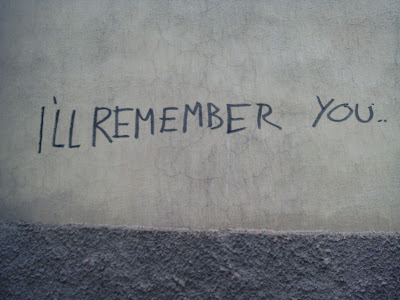 I'LL REMEMBER YOU..